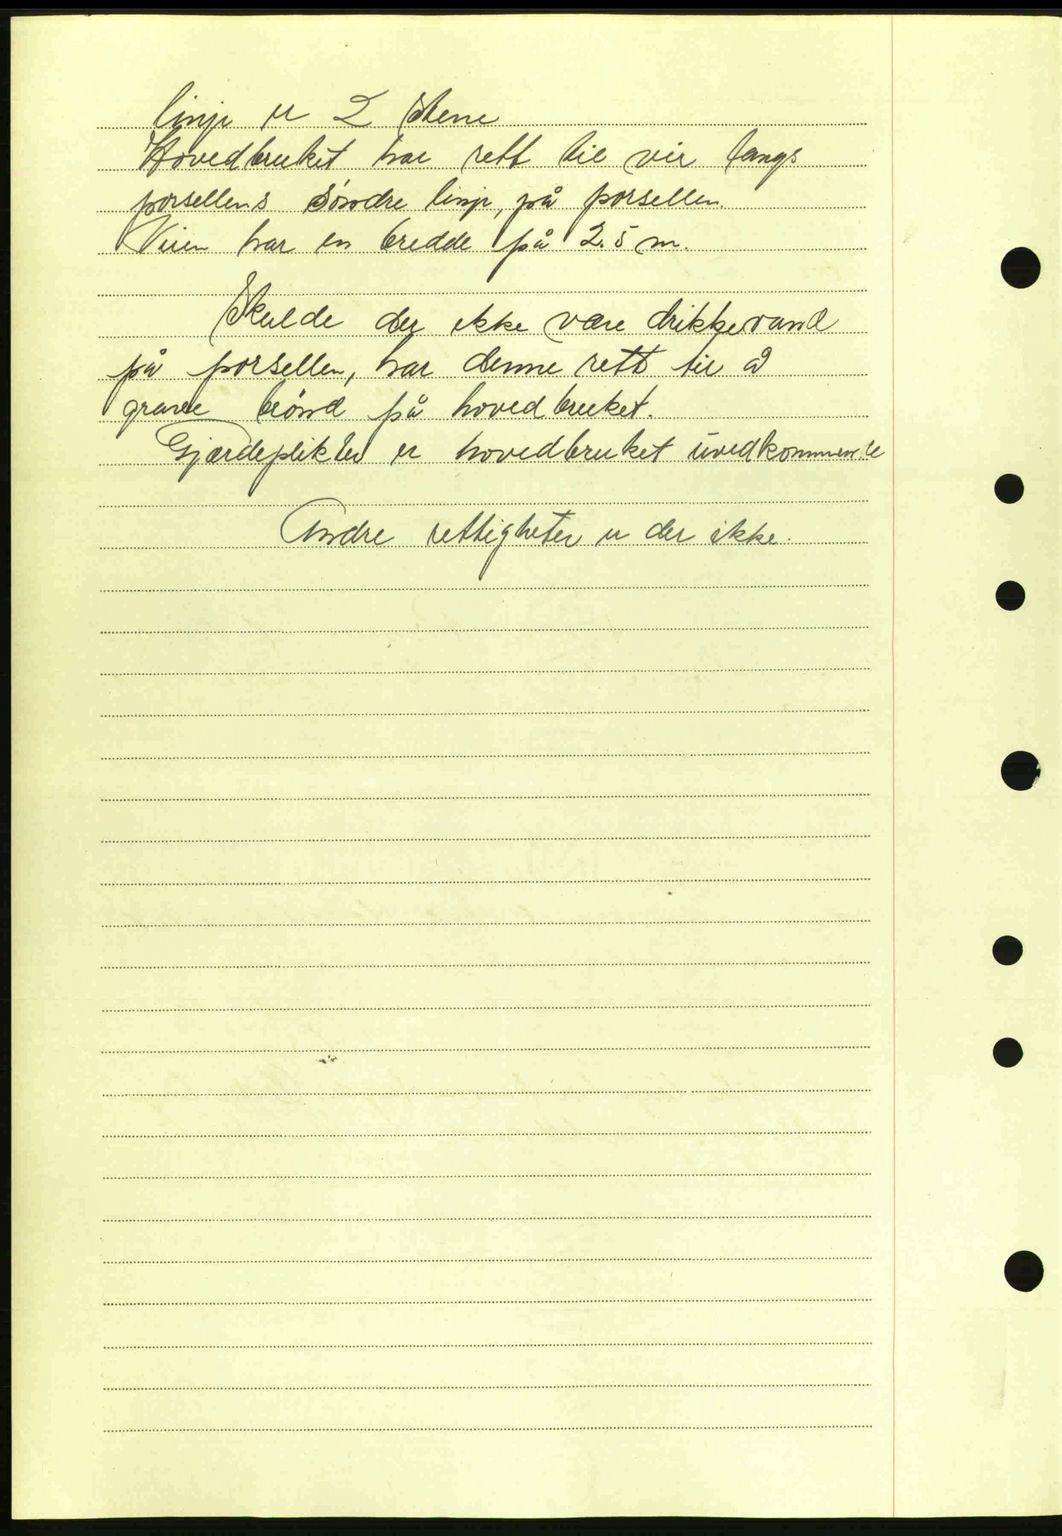 linje er 2 stene
Hovedbruket har rett til vei langs
porsellens søndre linje, på porsellen.
Veien har en bredde på 2.5 m.
Skulde der ikke være drikkevand
på porsellen, har denne rett til å
grave brønd på hovedbruket.
Gjærdeplikten er hovedbruket uvedkommende
Andre rettigheter er der ikke.